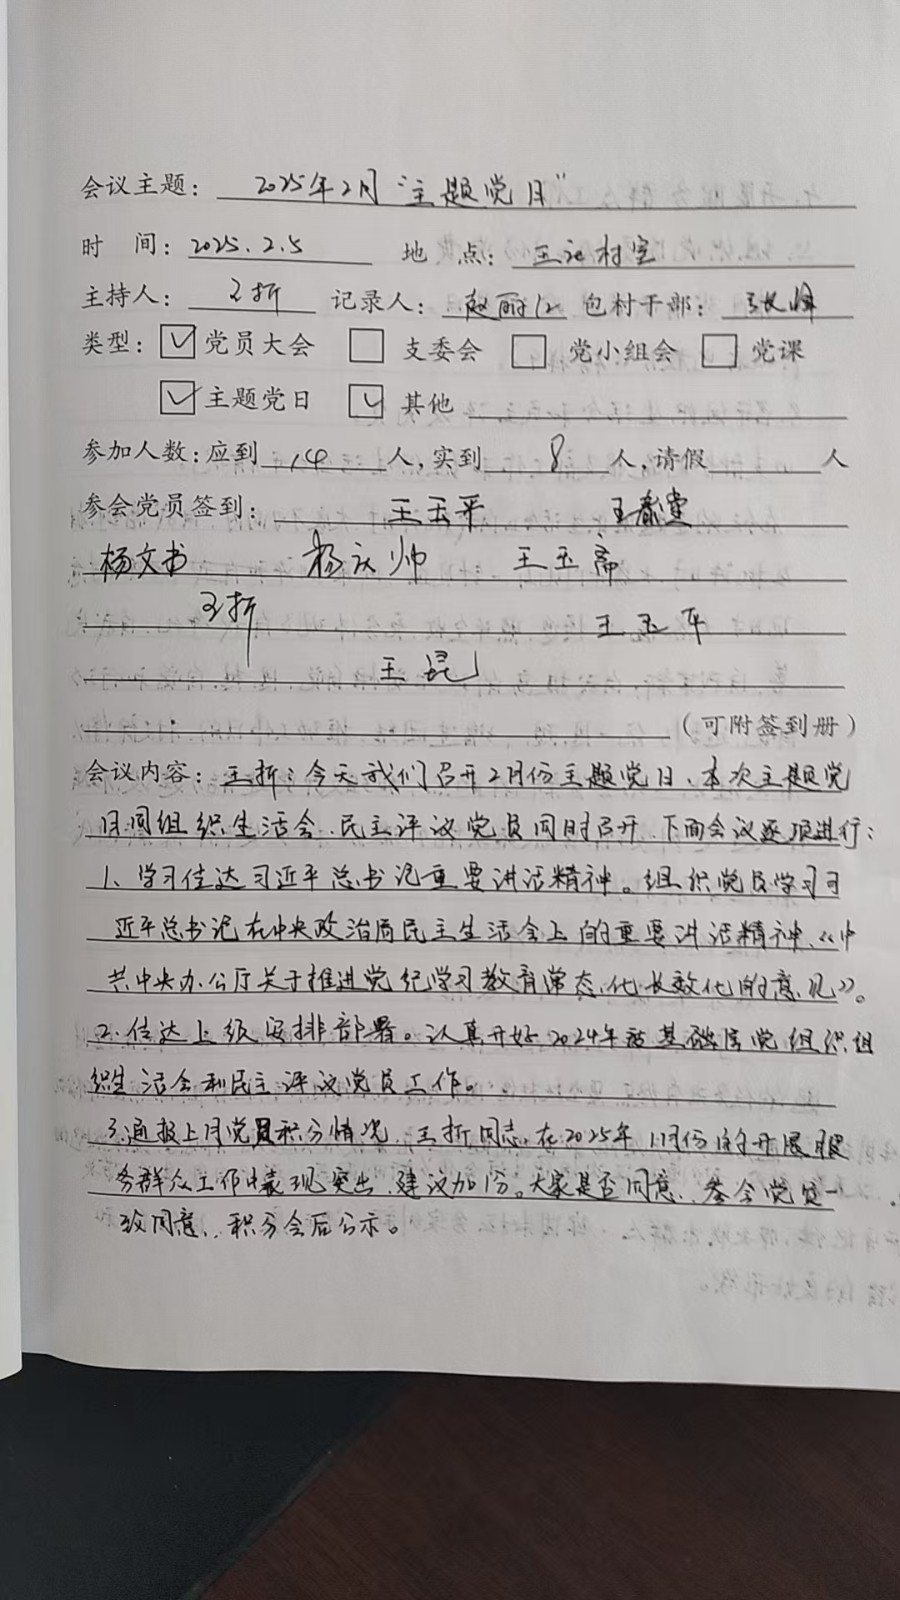 会议主题: 2025年2月“主题党日”
时 间: 2025.2.5 地 点: 王 村室
主持人: 王折 记录人: 赵丽 包村干部: 张
类型: ☑党员大会 □支委会 □党小组会 □党课
☑主题党日 ☑其他
参加人数: 应到 14 人, 实到 8 人, 请假 人
参会党员签到: 王玉平 王春堂
杨文书 杨庆帅 王玉斋
王折 王玉平
王昆
(可附签到册)
会议内容: 王折: 今天我们召开2月份主题党日、本次主题党
日同组织生活会、民主评议党员同时召开、下面会议逐项进行:
1、学习传达习近平总书记重要讲话精神。组织党员学习习
近平总书记在中央政治局民主生活会上的重要讲话精神、《中
共中央办公厅关于推进党纪学习教育常态化长效化的意见》。
2、传达上级安排部署。认真开好2024年度基础层党组织组
织生活会和民主评议党员工作。
3、通报上月党员积分情况、王折同志、在2025年1月份的开展服
务群众工作中表现突出、建议加1分。大家是否同意、参会党员一
致同意、积分会后公示。